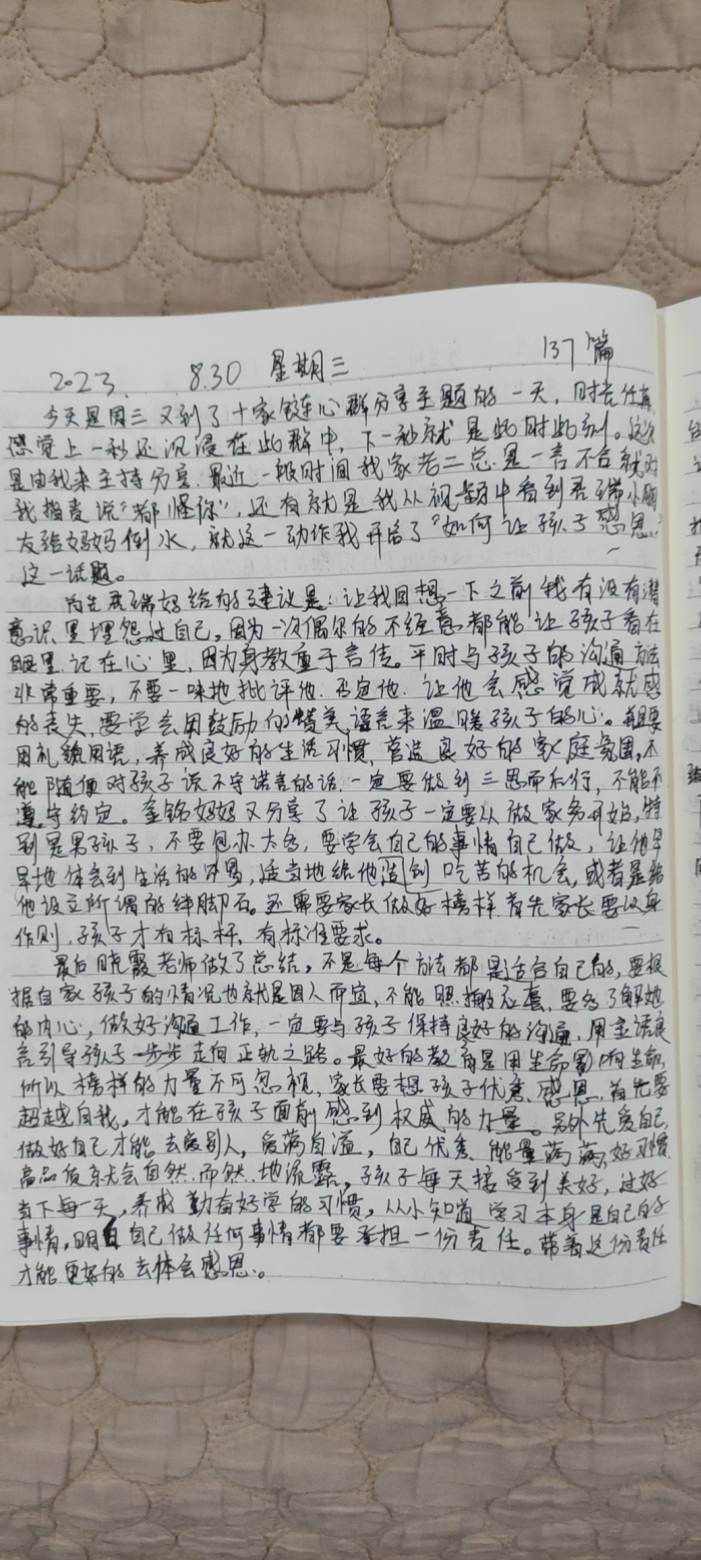 2023. 8.30 星期三 137篇
今天是周三又到了十家链心群分享主题的一天,时光任真
感觉上一秒还沉浸在此群中,下一秒就是此时此刻。这次
是由我来主持分享.最近一段时间我家老二总是一言不合就对
我指责说“都怪你”,还有就是我从视频中看到君瑞小朋
友给妈妈倒水,就这一动作我开启了“如何让孩子感恩”
这一话题。
君瑞妈给的建议是:让我回想一下之前我有没有潜
意识里埋怨过自己,因为一次偶尔的不经意都能让孩子看在
眼里.记在心里,因为身教重于言传。平时与孩子的沟通方法
非常重要,不要一味地批评他.否定他.让他会感觉成就感
的丧失,要学会用鼓励的赞美语言来温暖孩子的心。都要
用礼貌用语,养成良好的生活习惯,营造良好的家庭氛围,不
能随便对孩子说不守诺言的话.一定要做到三思而后行,不能不
遵守约定。金铭妈妈又分享了让孩子一定要从做家务开始,特
别是男孩子,不要包办太多,要学会自己的事情自己做,让他早
早地体会到生活的不易,适当地给他造到吃苦的机会,或者是给
他设立所谓的绊脚石。还需要家长做好榜样.首先家长要以身
作则,孩子才有标杆,有标准要求。
最后晓霞老师做了总结,不是每个方法都是适合自己的,要根
据自家孩子的情况也就是因人而宜,不能照搬无套,要多了解她
的内心,做好沟通工作,一定要与孩子保持良好的沟通,用金语良
言引导孩子一步步走向正轨之路。最好的教育是用生命影响生命,
所以榜样的力量不可忽视,家长要想孩子优秀、感恩.首先要
超越自我,才能在孩子面前感到权威的力量。另外先爱自己,
做好自己才能去爱别人,爱满自溢,自己优秀、能量满满,好习惯
高品质就会自然而然地流露,孩子每天接受到美好,过好
当下每一天,养成勤奋好学的习惯,从小知道学习本身是自己的
事情,明白自己做任何事情都要承担一份责任。带着这份责任
才能更好的去体会感恩。